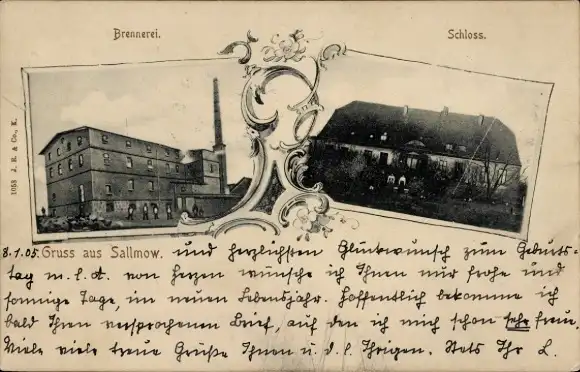 Brennerei.
Schloss.
1058 J. R. & Co., K.
8.1.05. Gruss aus Sallmow. und herzlichsten Glückwunsch zum Geburts-
tag m. l. A. von Herzen wünsche ich Ihnen nur frohe und
sonnige Tage, im neuen Lebensjahr. Hoffentlich bekomme ich
bald Ihren versprochenen Brief, auf den ich mich schon sehr freue.
Viele viele treue Grüße Ihnen u. d. l. Ihrigen. Stets Ihr L.